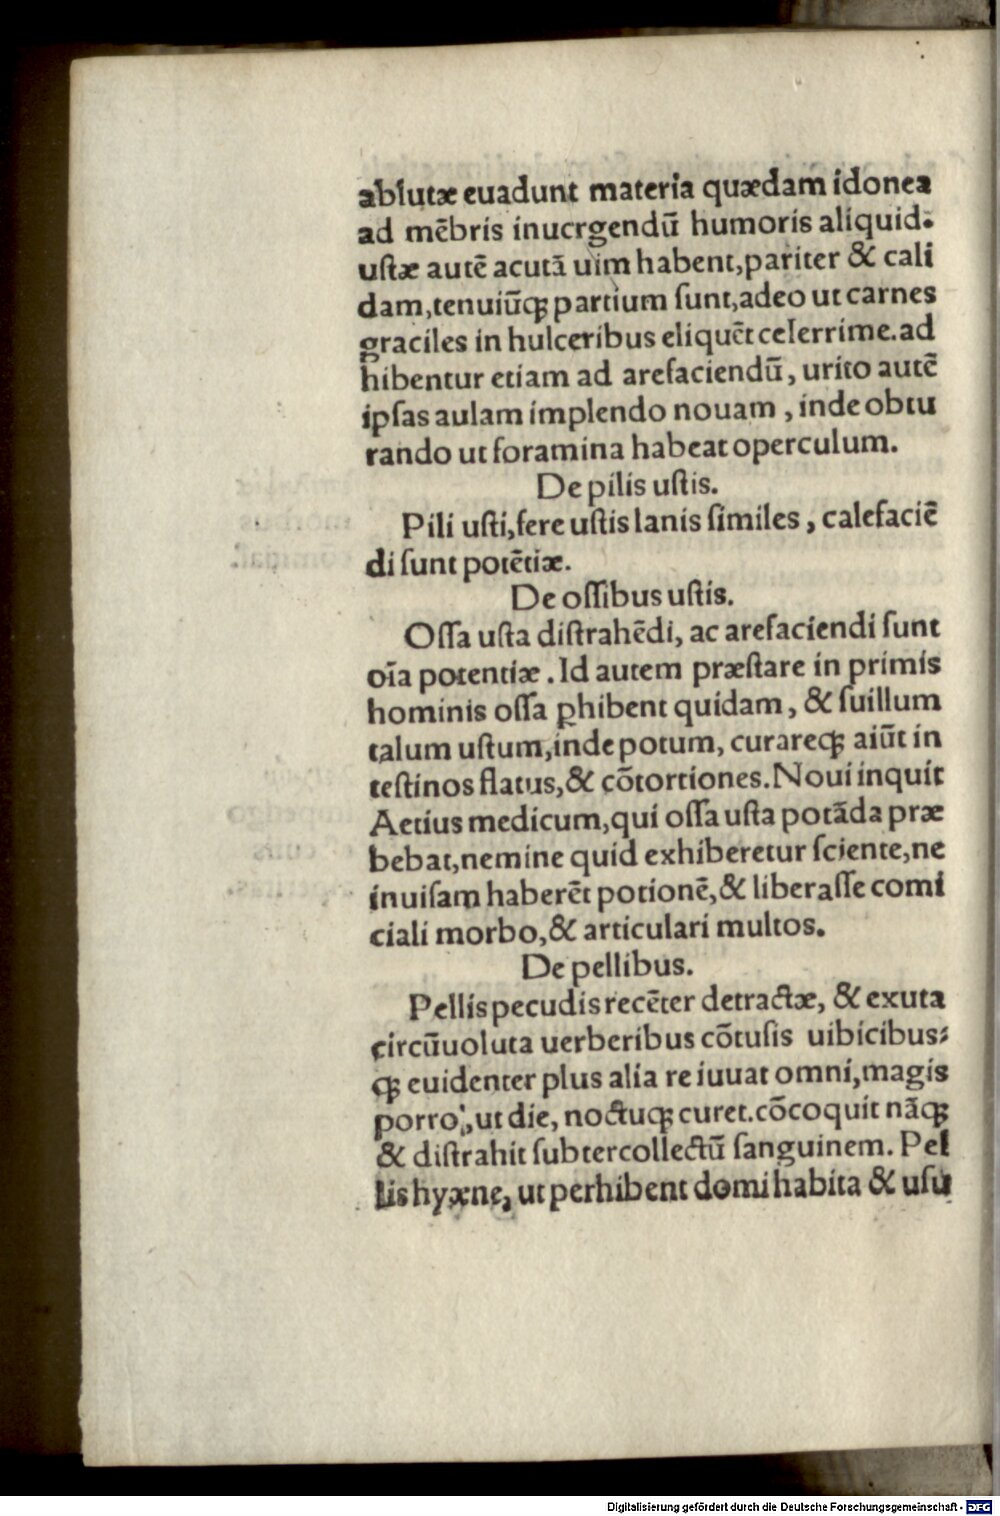 ablutæ euadunt materia quædam idonea
ad mēbris inuergendū humoris aliquid.
uſtæ autē acutā uim habent,pariter & cali
dam,tenuiūqꝫ partium ſunt,adeo ut carnes
graciles in hulceribus eliquēt celerrime.ad
hibentur etiam ad arefaciendū, urito autē
ipſas aulam implendo nouam, inde obtu
rando ut foramina habeat operculum.
De pilis uſtis.
Pili uſti,fere uſtis lanis ſimiles, calefaciē
di ſunt potētiæ.
De oſſibus uſtis.
Oſſa uſta diſtrahēdi, ac arefaciendi ſunt
oīa potentiæ. Id autem præſtare in primis
hominis oſſa ꝑhibent quidam, & ſuillum
talum uſtum,inde potum, curareqꝫ aiūt in
teſtinos flatus,& cōtortiones.Noui inquit
Aetius medicum,qui oſſa uſta potāda præ
bebat,nemine quid exhiberetur ſciente,ne
inuiſam haberēt potionē,& liberaſſe comi
ciali morbo,& articulari multos.
De pellibus.
Pellis pecudis recēter detractæ, & exuta
circūuoluta uerberibus cōtuſis uibicibus:
qꝫ euidenter plus alia re iuuat omni,magis
porro,ut die, noctuqꝫ curet.cōcoquit nāqꝫ
& diſtrahit ſubtercollectū ſanguinem. Pel
lis hyæne, ut perhibent domi habita & uſu
Digitalisierung gefördert durch die Deutsche Forschungsgemeinschaft - DFG